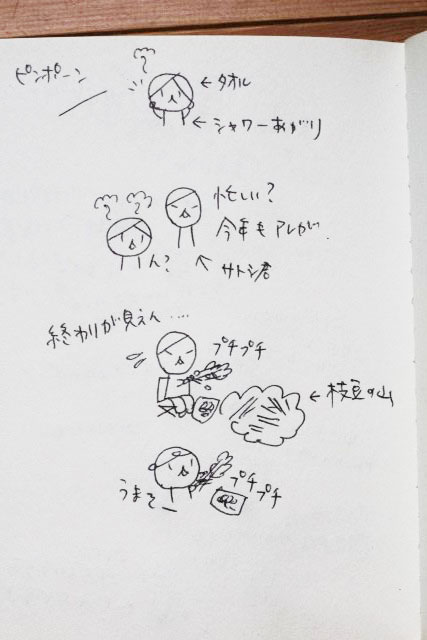 ピンポーン
←タオル
←シャワーあがり
忙しい?
今年もアレが
ん?
サトシ君
終わりが見えん....
プチプチ
←枝豆の山
うまそー
プチ
プチ